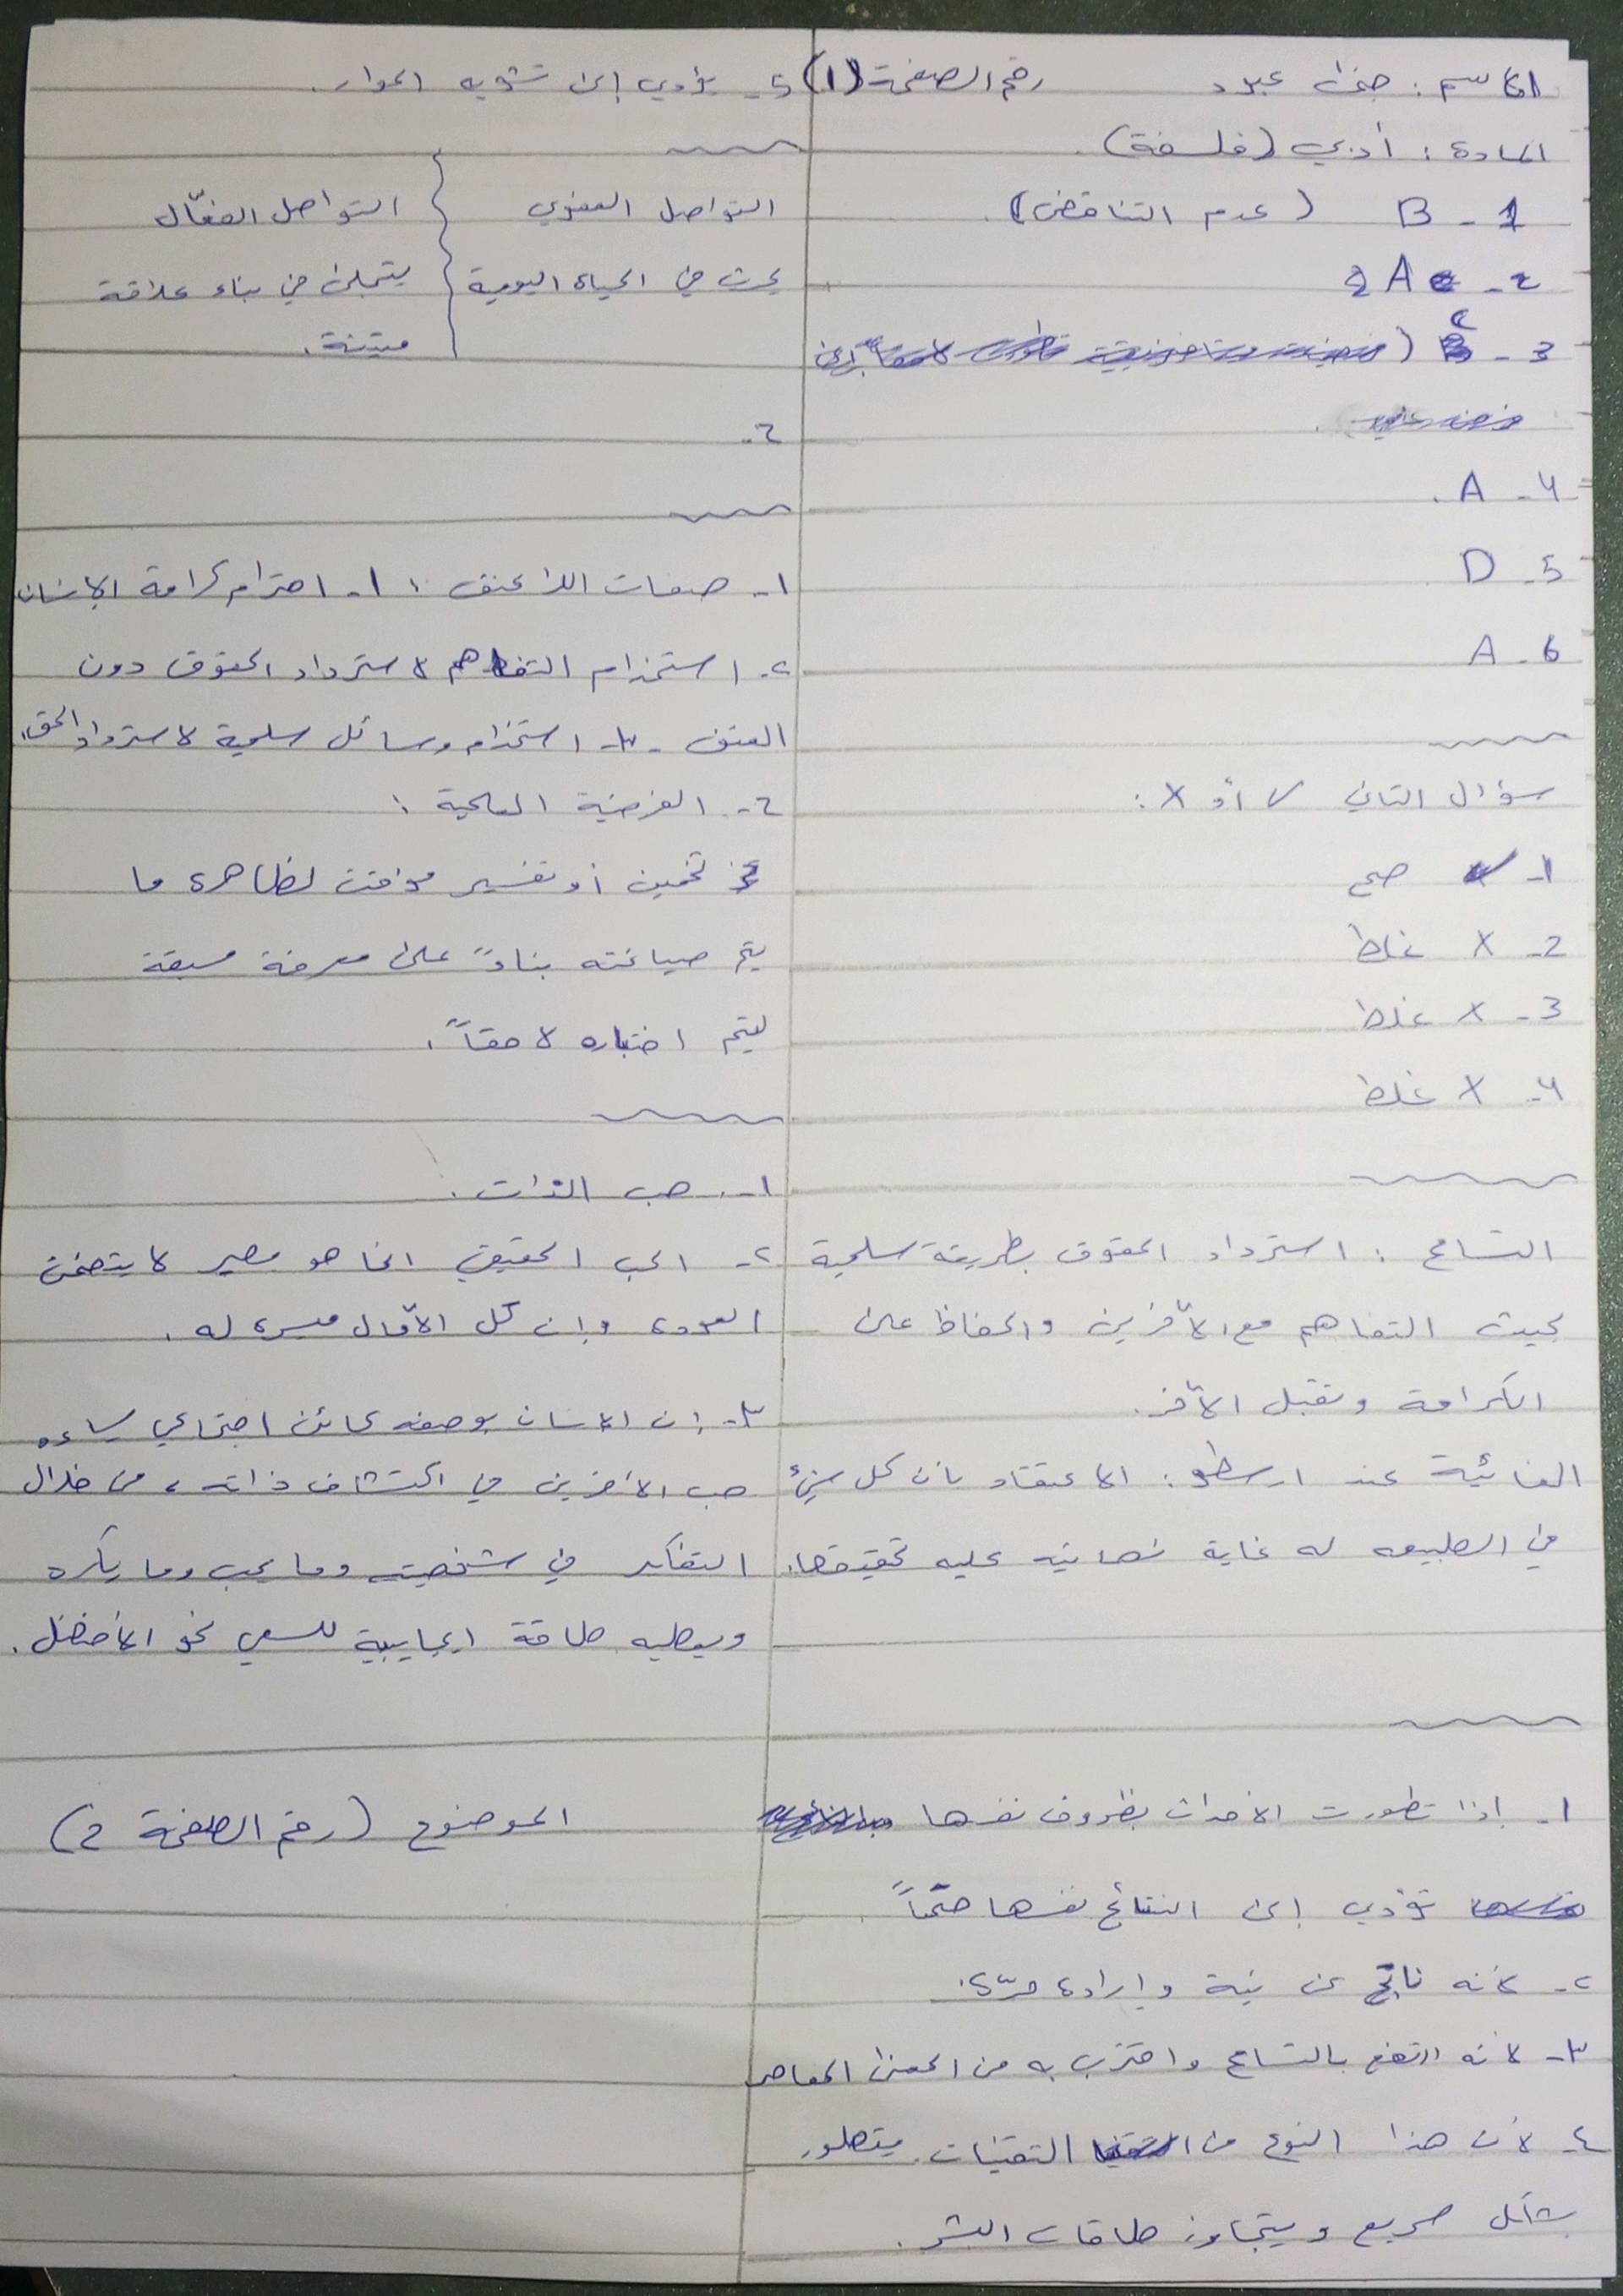 الاسم : جنى عبود
رقم الصفحة (1)
المادة : أدبي (فلسفة) .
1 - B ( عدم التناقض ) .
2 - A
3 - C
4 - A .
5 - D
6 - A
سؤال الثاني √ أو X :
1 - صح
2 - X غلط
3 - X غلط
4 - X غلط
التسامح : استرداد الحقوق بطريقة سلمية
بحيث التفاهم مع الآخرين والحفاظ على
الكرامة وتقبل الآخر .
الغائية عند ارسطو : الاعتقاد بان كل شيء
في الطبيعه له غاية نهائية عليه تحقيقها .
1 - إذا تطورت الأحداث بظروف نفسها
تؤدي إلى النتائج نفسها حتماً .
2 - لأنه ناتج عن نية وإرادة حرّة .
3 - لأنه ارتفع بالتسامح واقترب به من المعنى المعاصر
4 - لأن هذا النوع من التقنيات يتطور
بشكل سريع ويتجاوز طاقات البشر .
5 - يؤدي إلى تشويه الحوار .
التواصل العفوي { التواصل الفعّال
يحدث في الحياة اليومية { يتجلى في بناء علاقة
متينة .
2 -
1 - صفات اللاعنف : 1 - احترام كرامة الإنسان
2 - استخدام التفاهم لاسترداد الحقوق دون
العنف - 3 - استخدام وسائل سلمية لاسترداد الحق .
2 - الفرضية العلمية :
تخمين أو تفسير مؤقت لظاهرة ما
يتم صياغته بناءً على معرفة مسبقة
ليتم اختباره لاحقاً .
1 - حب الذات .
2 - الحب الحقيقي انما هو مصير لا يتضمن
العودة وإن كل الآمال ميسرة له .
3 - إن الانسان بوصفه كائن اجتماعي يساعده
حب الآخرين في اكتشاف ذاته ، من خلال
التفكير في شخصيته وما يحب وما يكره
ويعطيه طاقة ايجابية للسعي نحو الأفضل .
الموضوع (رقم الصفحة 2)